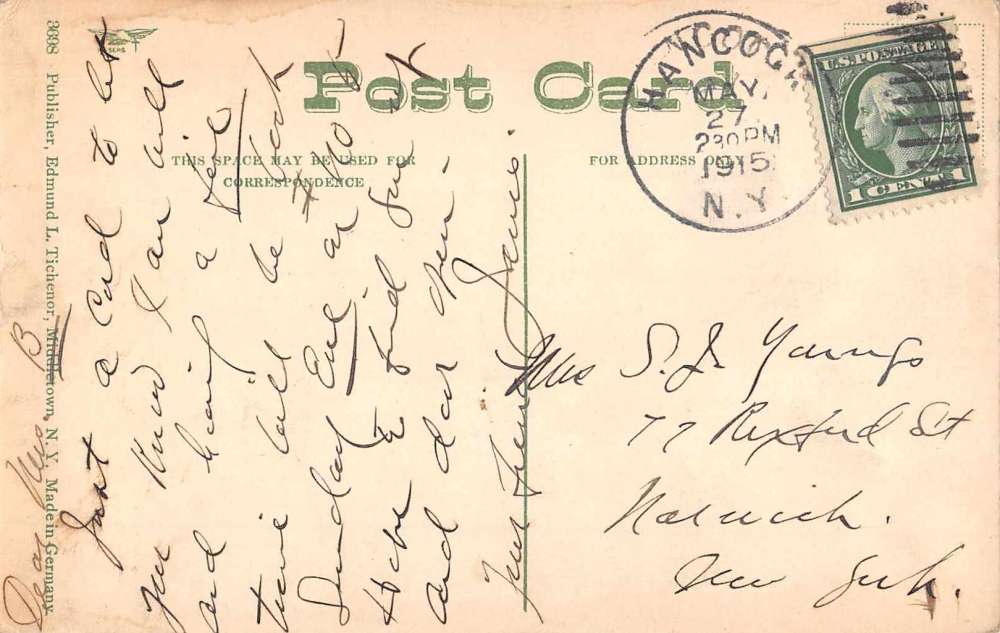 3698 Publisher, Edmund L. Tichenor, Middletown, N. Y. Made in Germany.
Post Card
THIS SPACE MAY BE USED FOR
CORRESPONDENCE
FOR ADDRESS ONLY
HANCOCK
MAY
27
230PM
1915
N.Y.
U.S. POSTAGE
1 CENT 1
Dear Mrs. B
Just a Card to let
you know I am well
and having a
time will be back
Sunday Eve or Mo
Hope to find you
and dear
Your Friend Jennie
Mrs S. J. Youngs
77 Rexford St
Norwich.
New York.